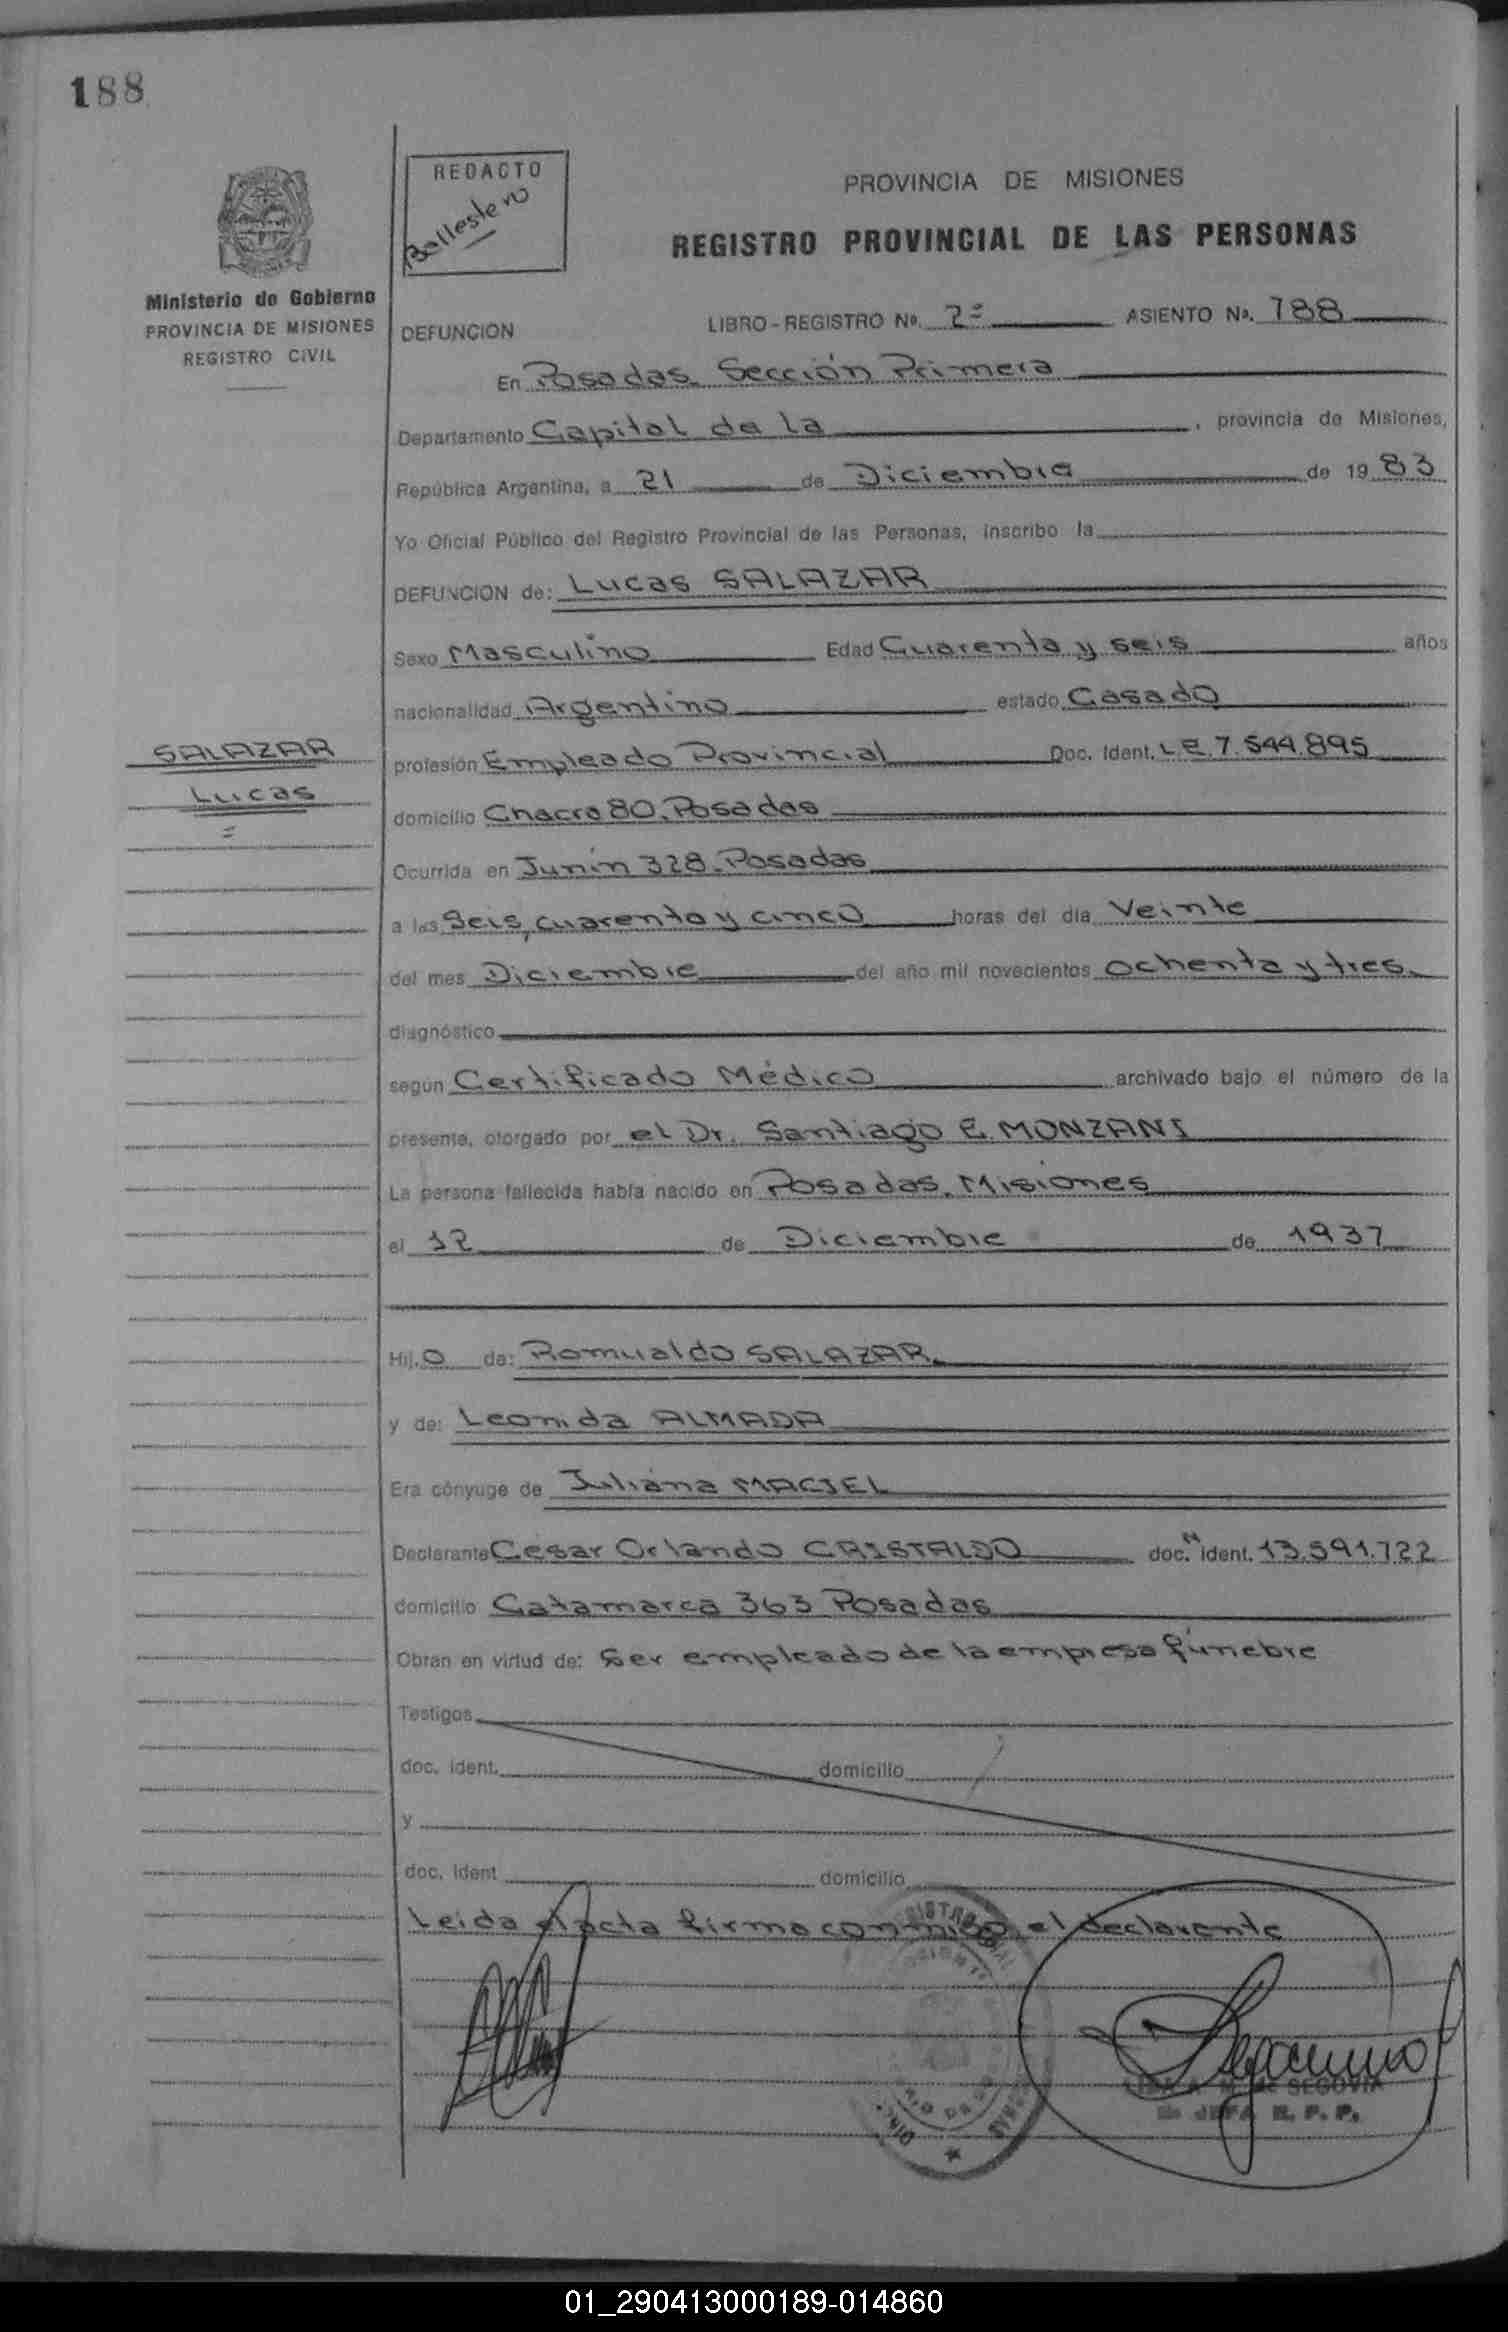 188
REDACTO
Ballestero
Ministerio de Gobierno
PROVINCIA DE MISIONES
REGISTRO CIVIL
PROVINCIA DE MISIONES
REGISTRO PROVINCIAL DE LAS PERSONAS
DEFUNCION LIBRO-REGISTRO Nº. 2º ASIENTO Nº. 788
En Posadas. Sección Primera
Departamento Capital de la , provincia de Misiones,
República Argentina, a 21 de Diciembre de 1983
Yo Oficial Público del Registro Provincial de las Personas, inscribo la
DEFUNCION de: Lucas SALAZAR
Sexo Masculino Edad Cuarenta y seis años
nacionalidad Argentino estado Casado
SALAZAR
Lucas
profesión Empleado Provincial Doc. Ident. L.E 7.544.895
domicilio Chacra 80. Posadas
Ocurrida en Junín 328. Posadas
a las Seis, cuarenta y cinco horas del día Veinte
del mes Diciembre del año mil novecientos ochenta y tres.
diagnóstico
según Certificado Médico archivado bajo el número de la
presente, otorgado por el Dr. Santiago E. MONZANI
La persona fallecida había nacido en Posadas. Misiones
el 12 de Diciembre de 1937
Hij o de: Romualdo SALAZAR.
y de: Leonida ALMADA
Era cónyuge de Juliana MACIEL
Declarante César Orlando CRISTALDO doc. N ident. 13.591.722
domicilio Catamarca 363 Posadas
Obran en virtud de: Ser empleado de la empresa fúnebre
Testigos
doc. ident. domicilio
y
doc. ident domicilio
Leida el acta firma conmigo el declarante
SEGOVIA
JEFA R. P. P.
01_290413000189-014860